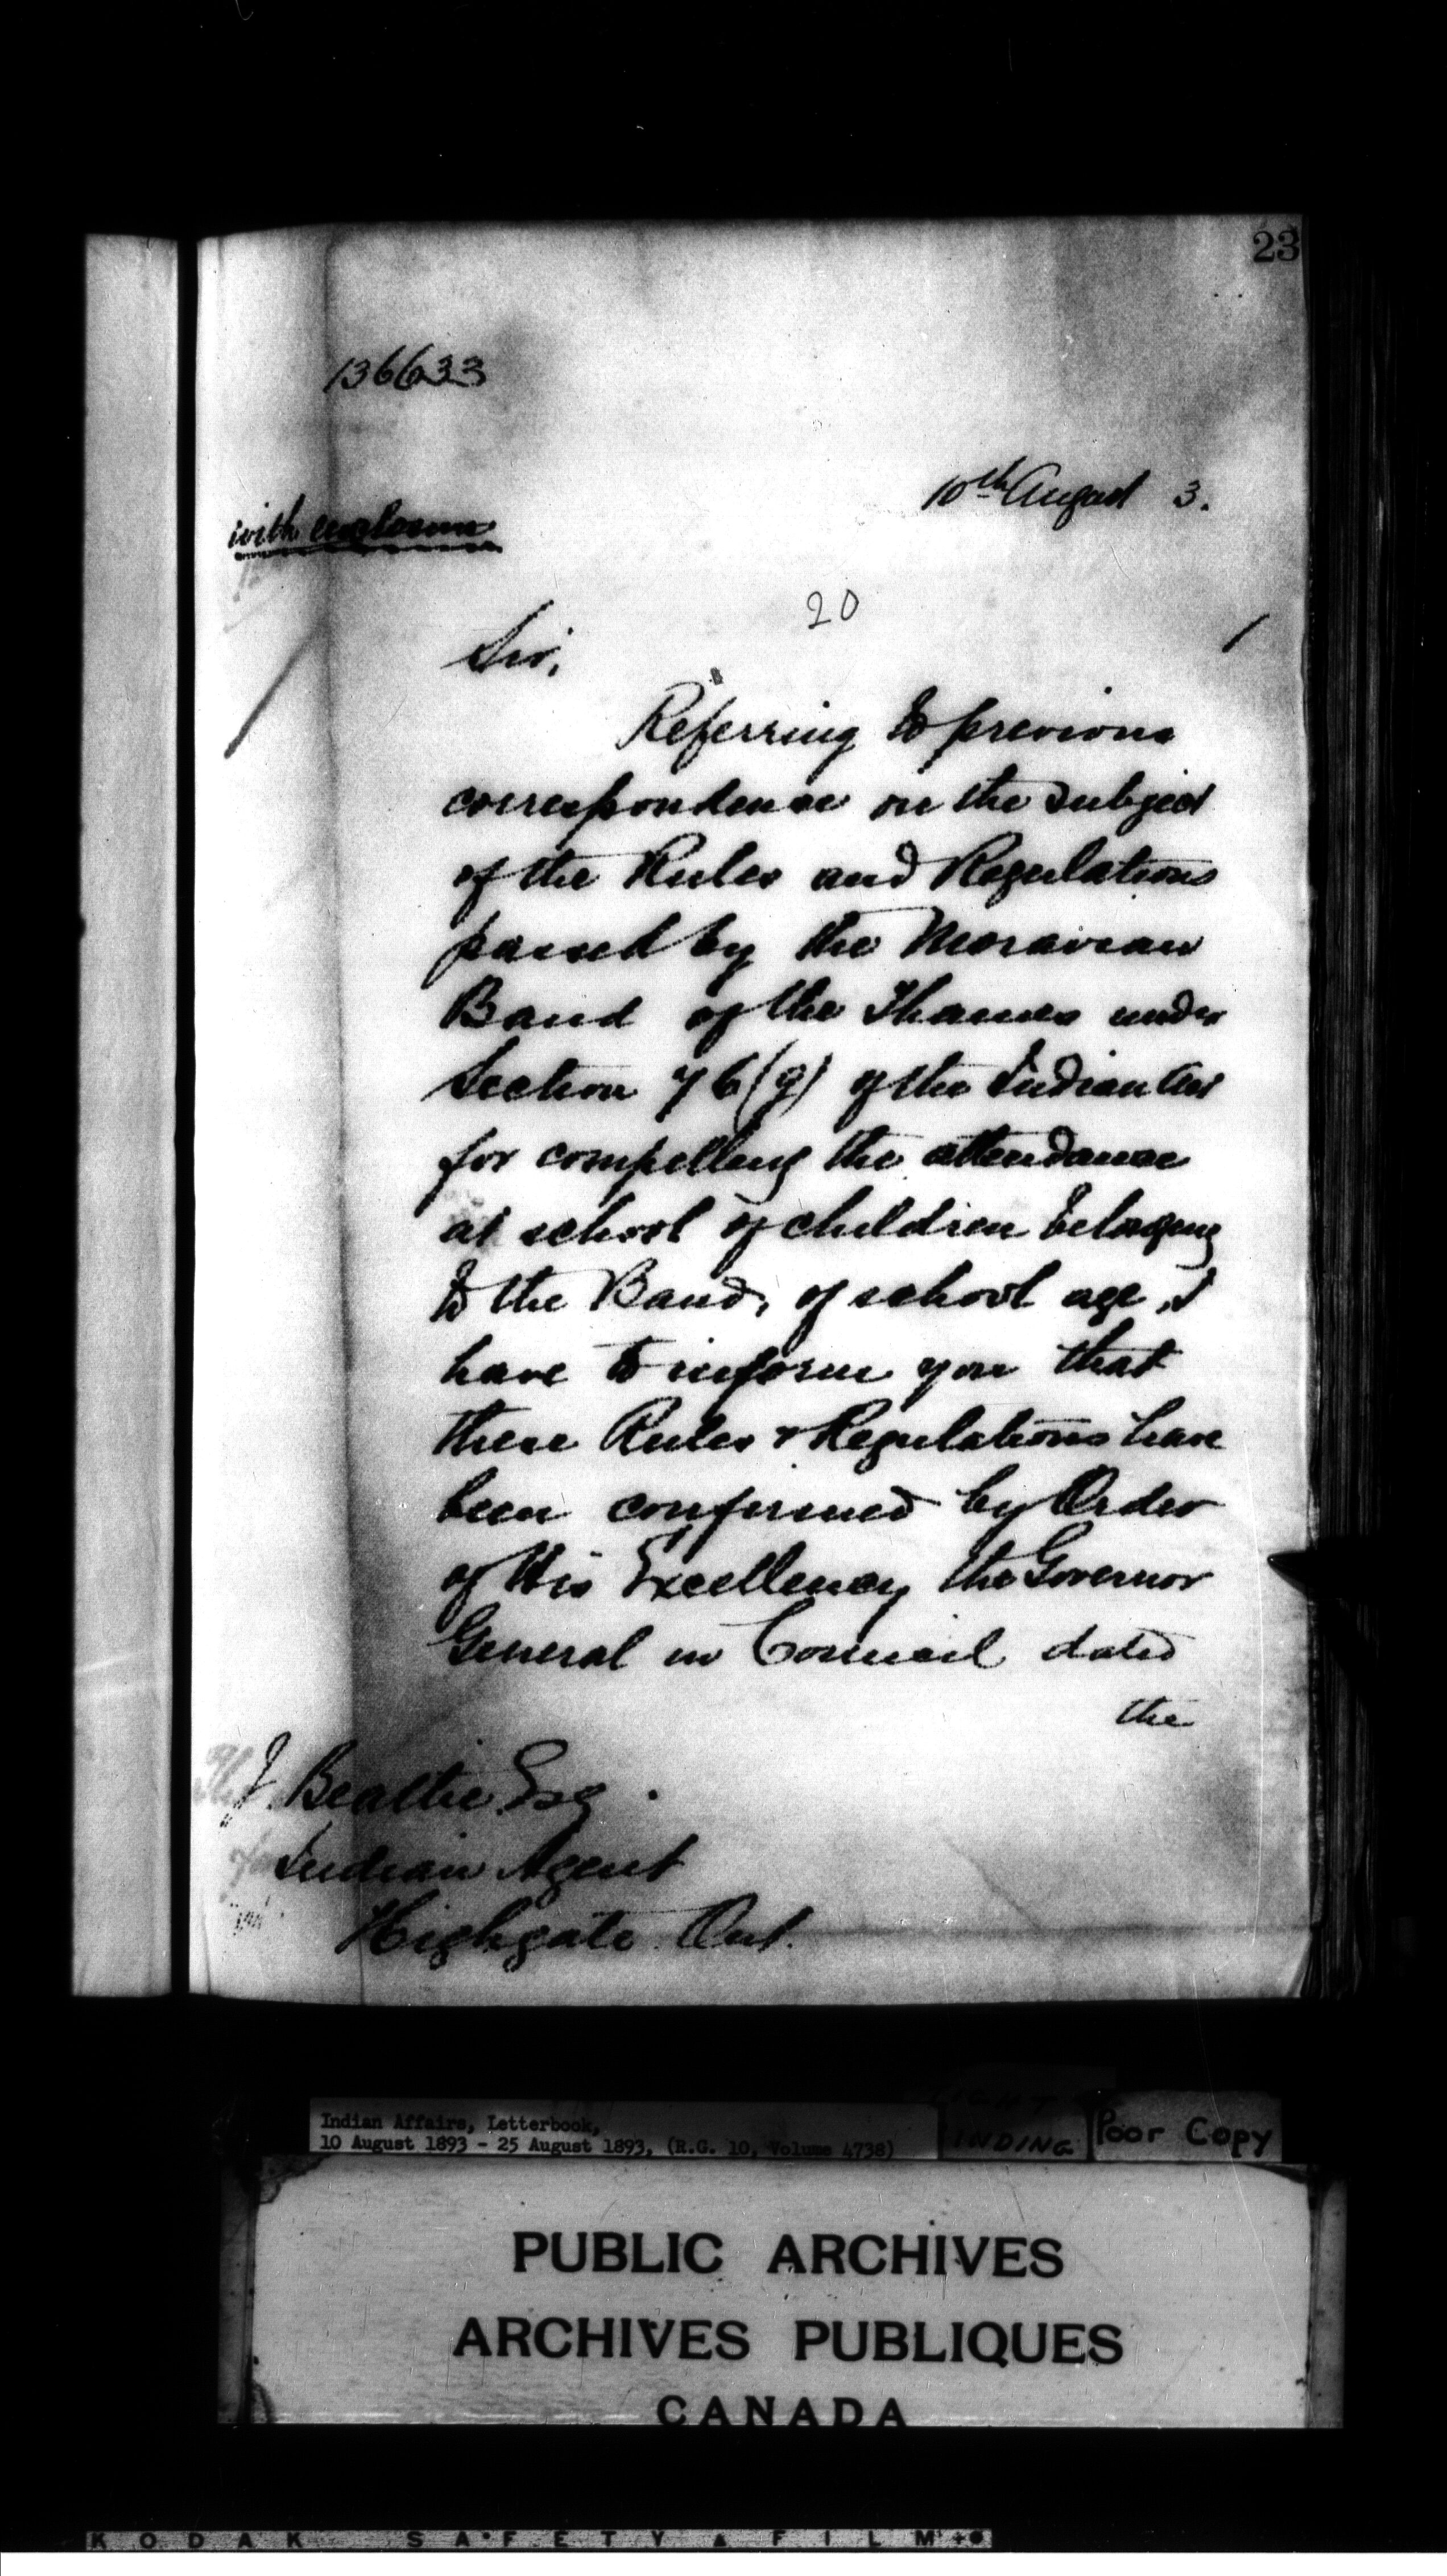 23
136633
10th August 3.
with enclosure
20
Sir,
Referring to previous
correspondence on the subject
of the Rules and Regulations
passed by the Moravian
Band of the Thames under
Section 76(9) of the Indian Act
for compelling the attendance
at school of children belonging
to the Band, of school age, I
have to inform you that
these Rules & Regulations have
been confirmed by Order
of His Excellency the Governor
General in Council dated
the
J. Beattie Esq
Indian Agent
Highgate Ont.
Indian Affairs, Letterbook,
10 August 1893 - 25 August 1893, (R.G. 10, Volume 4738)
Poor Copy
PUBLIC ARCHIVES
ARCHIVES PUBLIQUES
CANADA
KODAK SAFETY FILM